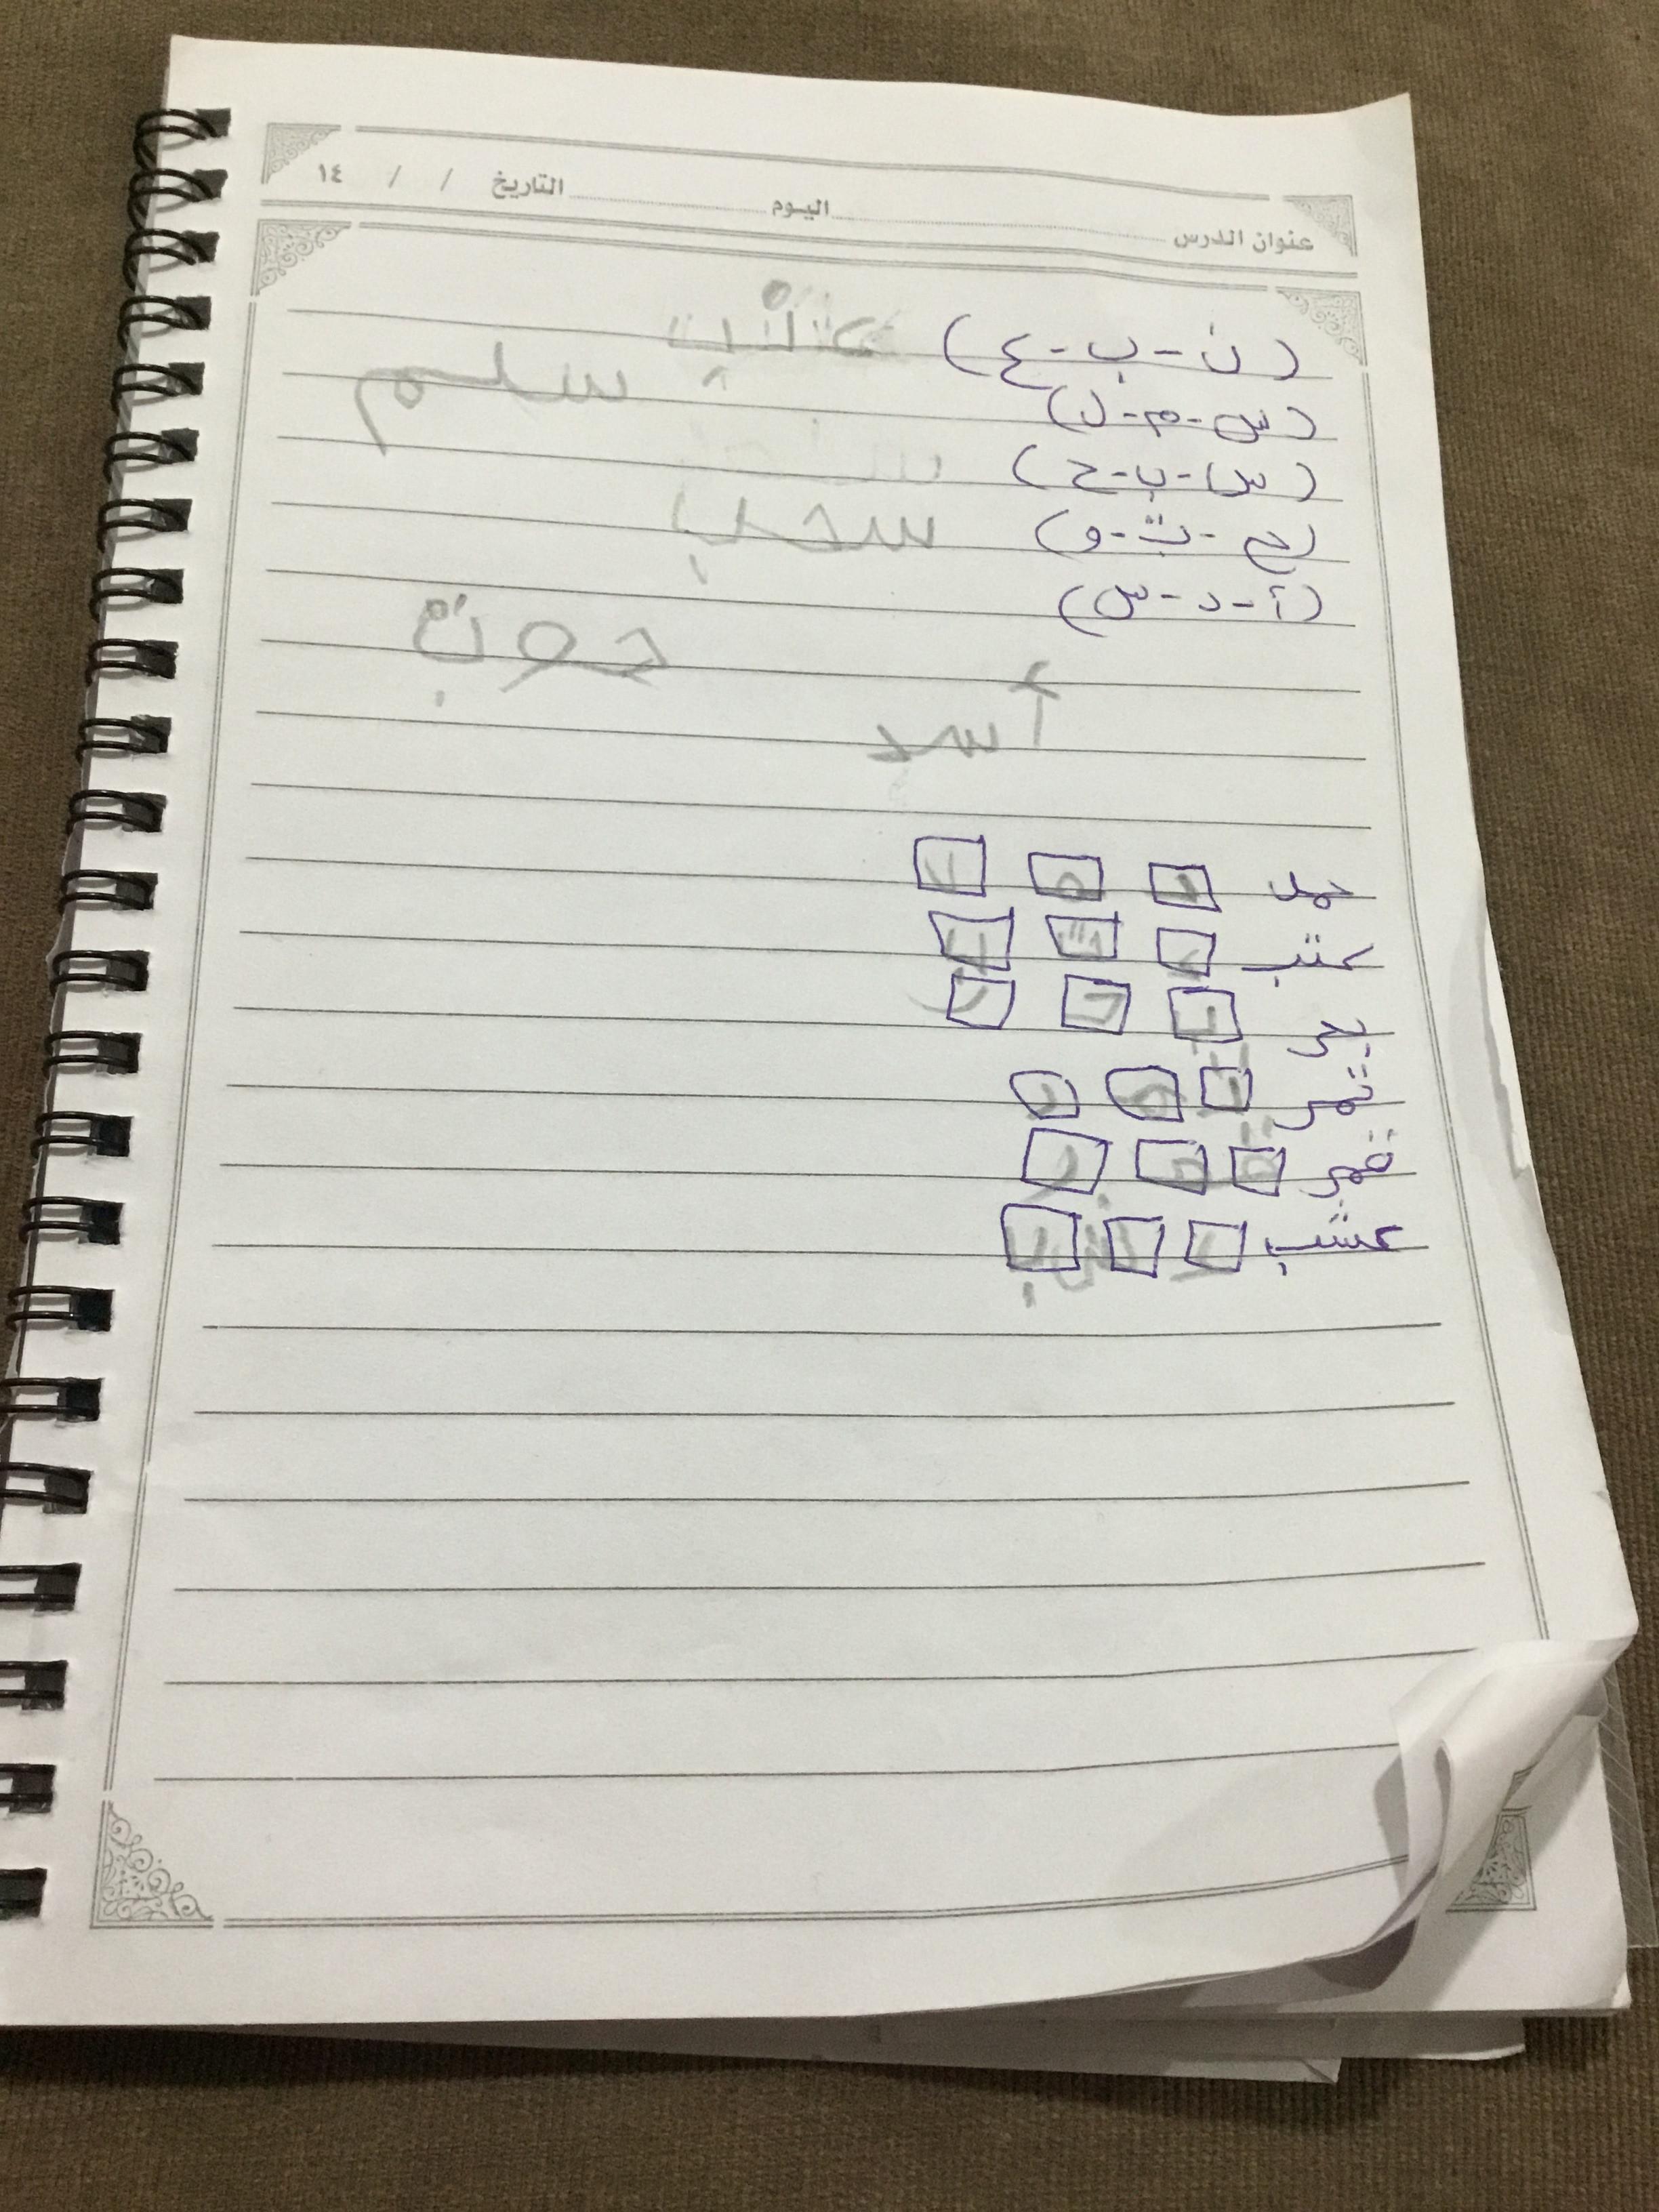 عنوان الدرس اليوم التاريخ / / ١٤
(ن - ب - ع) عنب
(س - م - ل) سلم
(س - ب - ح)
(ح - ت - و) سحب
(أ - د - س)
حوت
أسد
حمل ح م ل
عتب ع ت ب
بحر ب ح ر
تمر ت م ر
قمر ق م ر
عشب ع ش ب